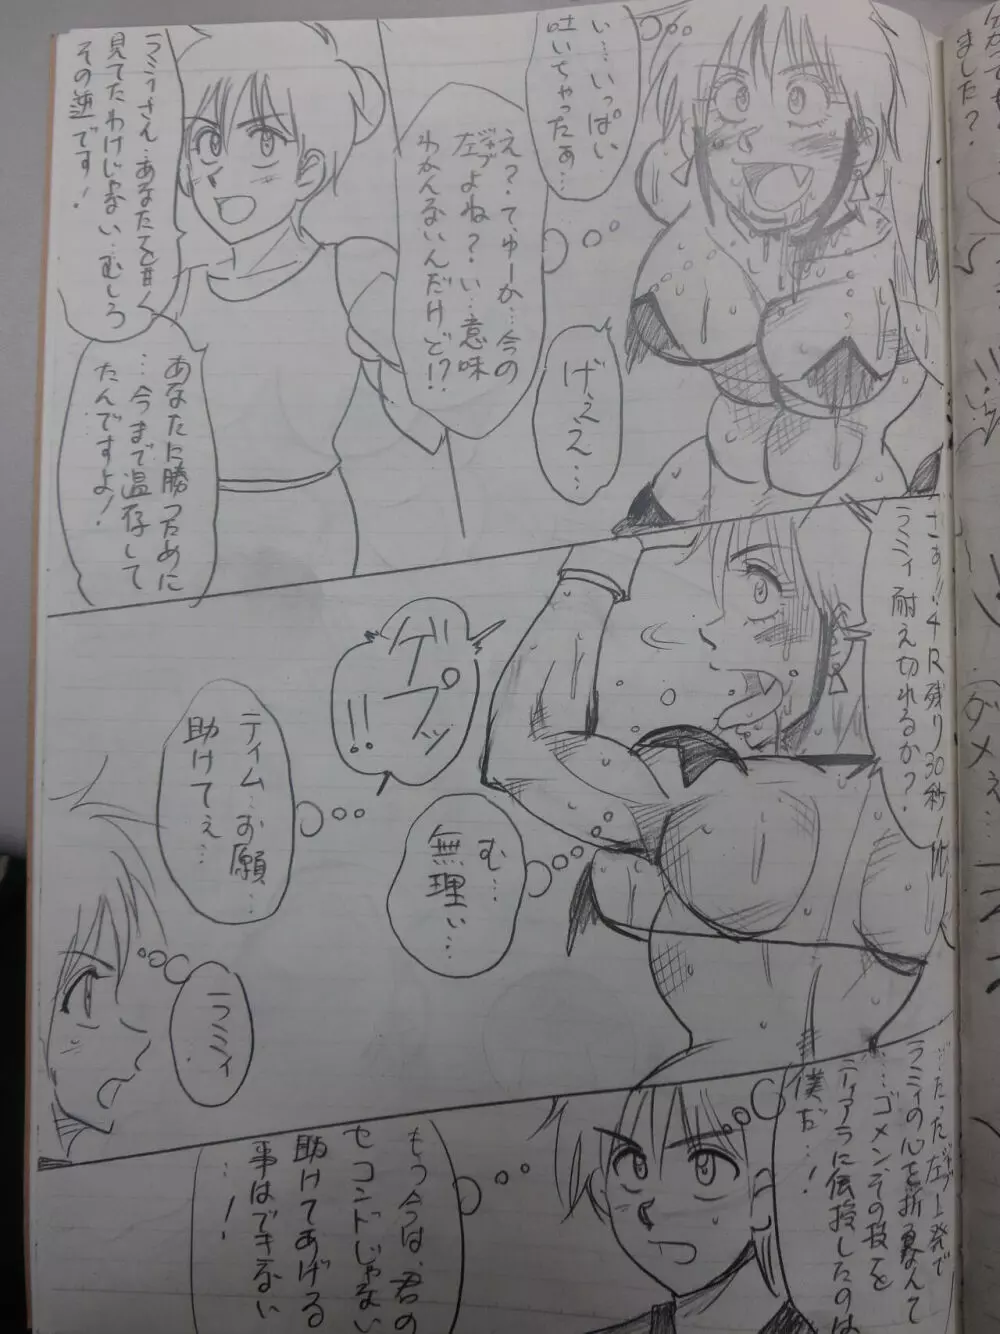 い…いっぱい
吐いちゃったぁ…
え?・て、ゅーか…今の
左ジャブよね?い…意味
わかんないんだけど!?
げぇえ…
ラミィさん…あなたを甘く
見てたわけじゃない…むしろ
その逆です!
あなたに勝つために
…今まで温存して
たんですよ!
さぁ!!4R残り30秒!
ラミィ耐え切れるか?
ゲプッ
!!
む…
無理ぃ…
ティム…お願…
助けてぇ…
ラミィ
…たった左ジャブ一発で
ラミィの心を折るなんて
…ゴメン、その技を
ティアラに伝授したのは
僕だ…!
もう今は、君の
セコンドじゃない
助けてあげる
事はできない
…!
ました?